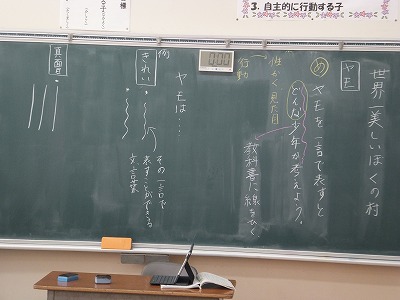 3. 自主的に行動する子
様
世界一美しいぼくの村
ヤモ
め ヤモを一言で表すと
どんな少年か考えよう。
教科書に線をひく
性かく 見た目
行動
0:00
ヤモは…
例
きれい
その一言で
表すことができる
文、言葉
真面目